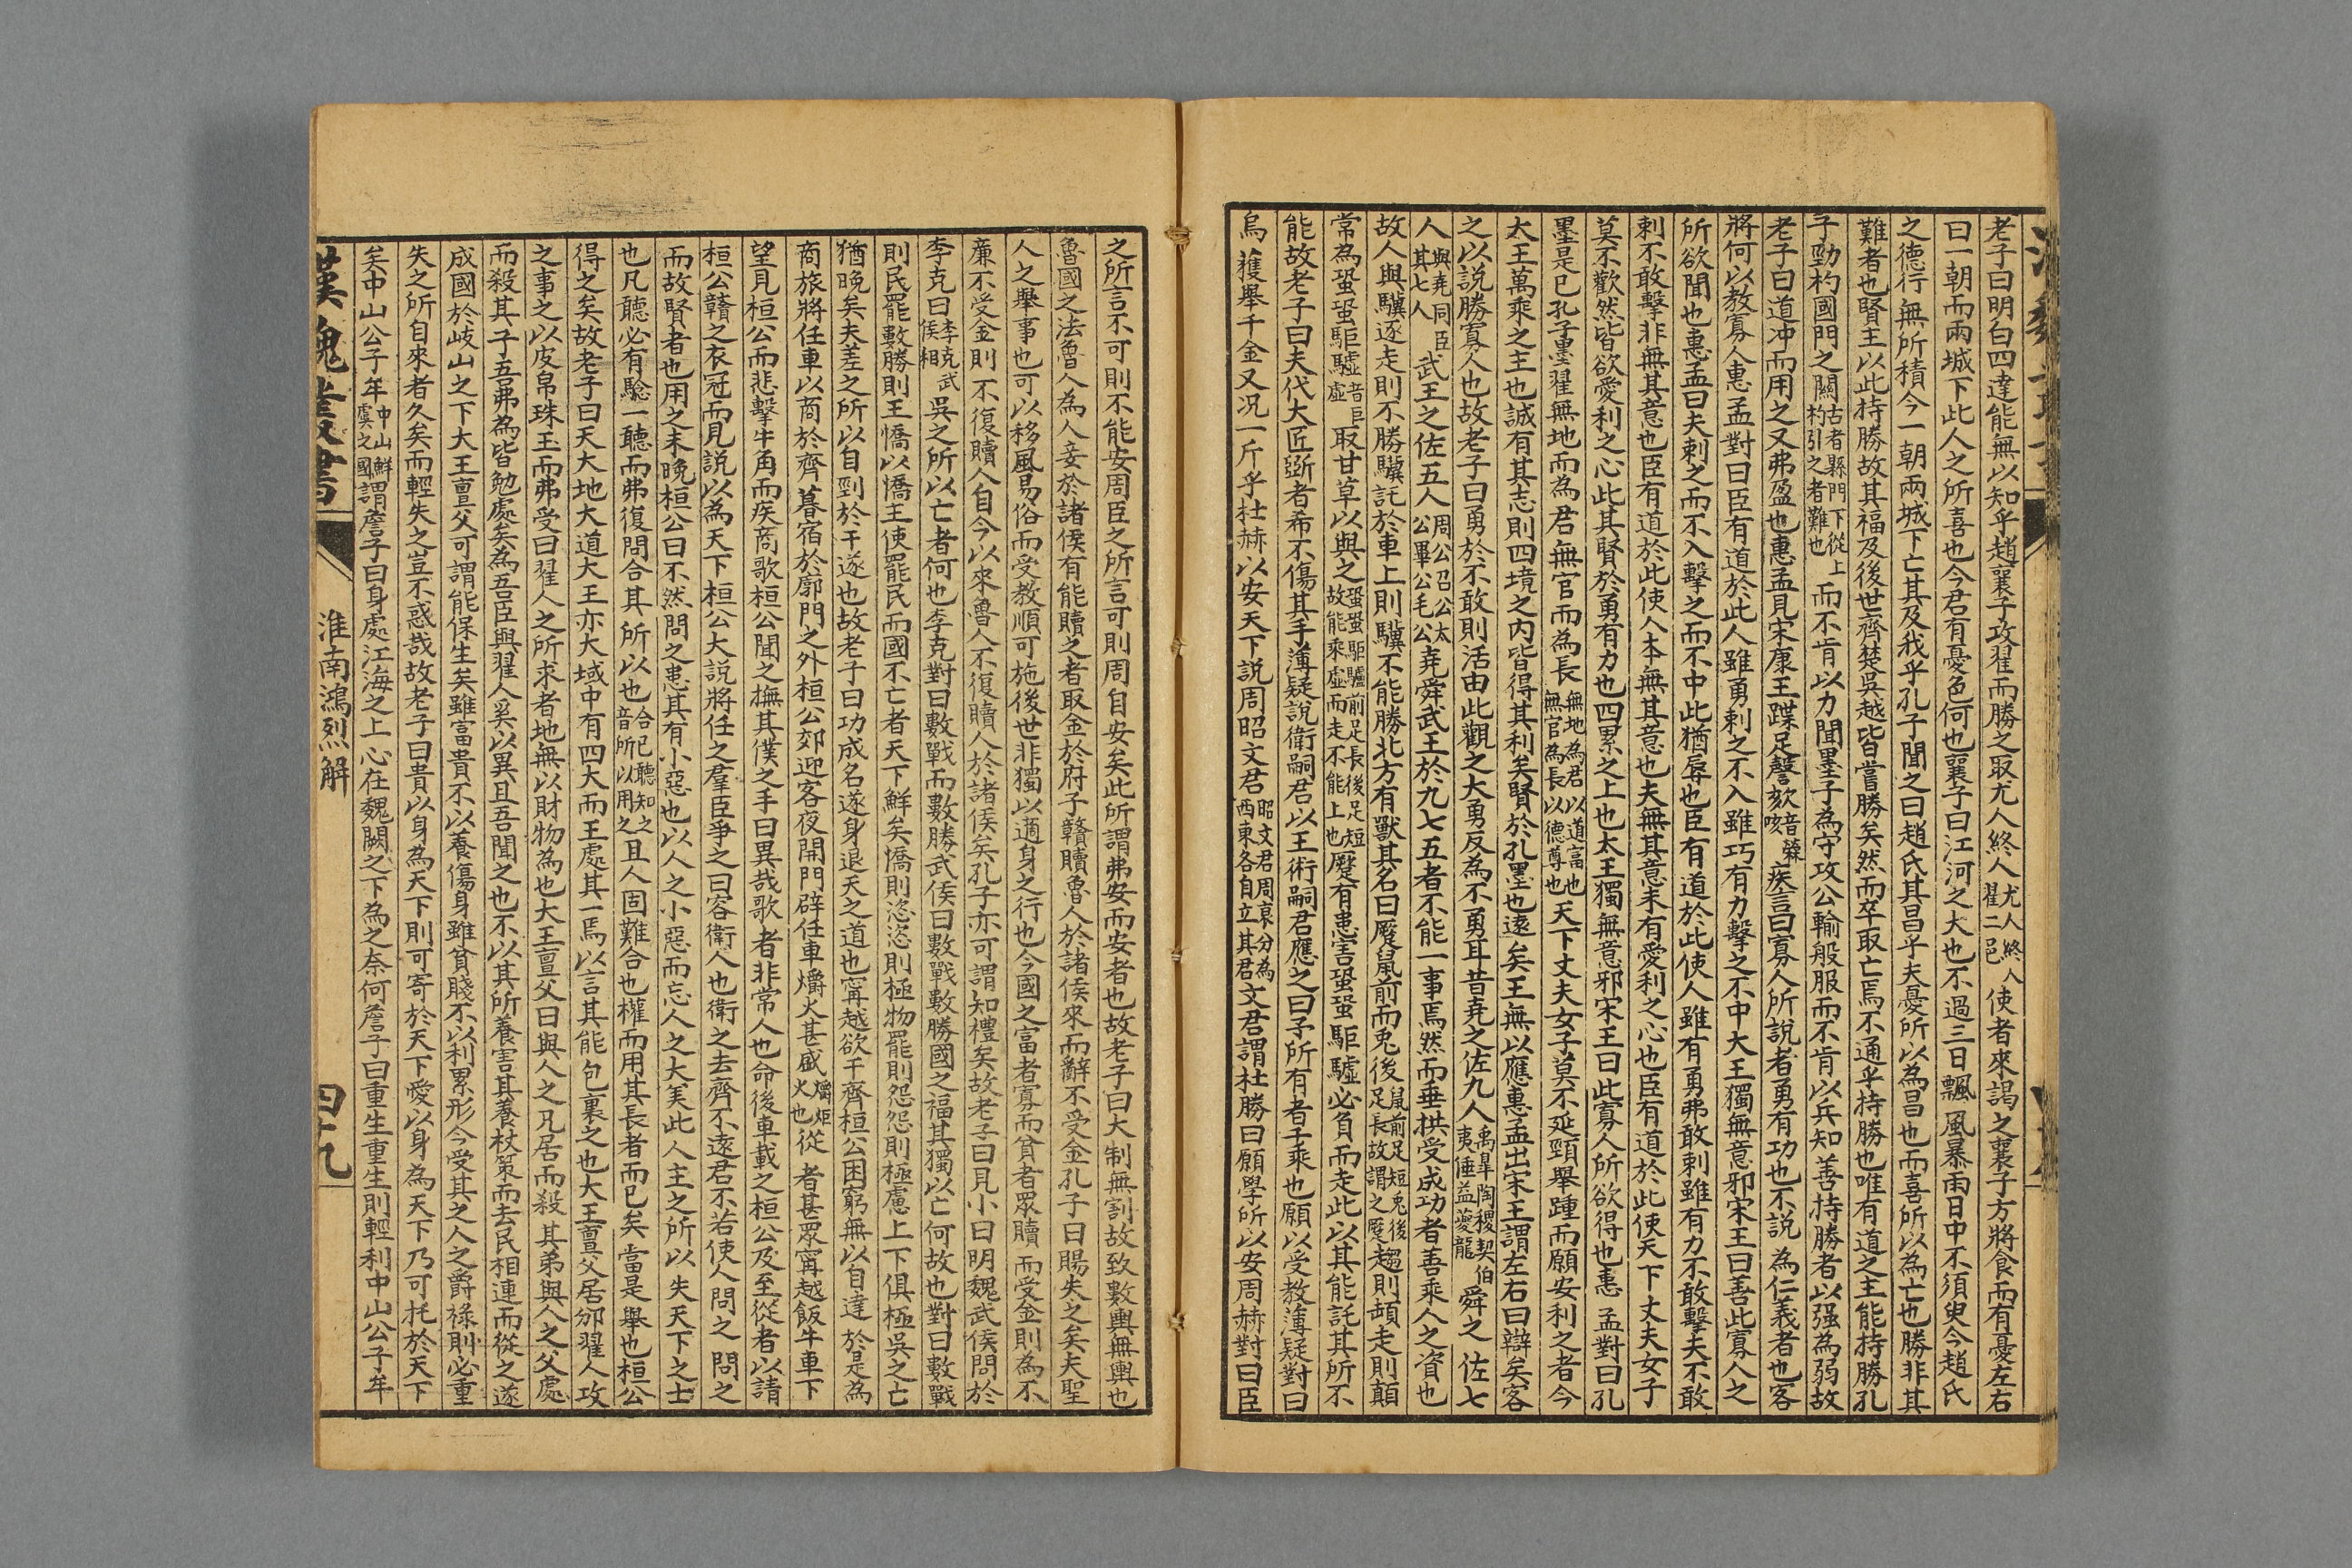 老子曰明白四達能無以知乎趙襄子攻翟而勝之取尤人終人尤人終人翟二邑使者來謁之襄子方將食而有憂色左右
曰一朝而兩城下此人之所喜也今君有憂色何也襄子曰江河之大也不過三日飄風暴雨日中不須臾今趙氏
之德行無所積今一朝兩城下亡其及我乎孔子聞之曰趙氏其昌乎夫憂所以為昌也而喜所以為亡也勝非其
難者也賢主以此持勝故其福及後世齊楚吳越皆嘗勝矣然而卒取亡焉不通乎持勝也唯有道之主能持勝孔
子勁杓國門之關古者縣門下從上杓引之者難也而不肯以力聞墨子為守攻公輸般服而不肯以兵知善持勝者以强為弱故
老子曰道冲而用之又弗盈也惠孟見宋康王蹀足謦欬疾言曰寡人所說者勇有功也不說為仁義者也客
將何以教寡人惠孟對曰臣有道於此人雖勇刺之不入雖巧有力擊之不中大王獨無意邪宋王曰善此寡人之
所欲聞也惠孟曰夫刺之而不入擊之而不中此猶辱也臣有道於此使人雖有勇弗敢刺雖有力不敢擊夫不敢
刺不敢擊非無其意也臣有道於此使人本無其意也夫無其意未有愛利之心也臣有道於此使天下丈夫女子
莫不歡然皆欲愛利之心此其賢於勇有力也四累之上也太王獨無意邪宋王曰此寡人所欲得也惠孟對曰孔
墨是已孔子墨翟無地而為君無官而為長無地為君以道富也無官為長以德尊也天下丈夫女子莫不延頸舉踵而願安利之者今
太王萬乘之主也誠有其志則四境之內皆得其利矣賢於孔墨也遠矣王無以應惠孟出宋王謂左右曰辯矣客
之以說勝寡人也故老子曰勇於不敢則活由此觀之大勇反為不勇耳昔堯之佐九人禹皐陶稷契伯夷倕益夔龍舜之佐七
人與堯同臣其七人武王之佐五人周公召公太公畢公毛公堯舜武王於九七五者不能一事焉然而垂拱受成功者善乘人之資也
故人與驥逐走則不勝驥託於車上則驥不能勝北方有獸其名曰蹷鼠前而兔後鼠前足短兔後足長故謂之蹷趨則頓走則顛
常為蛩蛩駏驉音巨虛取甘草以與之蛩蛩駏驉前足長後足短故能乘虛而走不能上也蹷有患害蛩蛩駏驉必負而走此以其能託其所不
能故老子曰夫代大匠斲者希不傷其手薄疑說衛嗣君以王術嗣君應之曰予所有者千乘也願以受教薄疑對曰
烏獲舉千金又况一斤乎杜赫以安天下說周昭文君昭文君周衰分為西東各自立其君文君謂杜勝曰願學所以安周赫對曰臣
之所言不可則不能安周臣之所言可則周自安矣此所謂弗安而安者也故老子曰大制無割故致數輿無輿也
魯國之法魯人為人妾於諸侯有能贖之者取金於府子贛贖魯人於諸侯來而辭不受金孔子曰賜失之矣夫聖
人之舉事也可以移風易俗而受教順可施後世非獨以適身之行也今國之富者寡而貧者眾贖而受金則為不
廉不受金則不復贖人自今以來魯人不復贖人於諸侯矣孔子亦可謂知禮矣故老子曰見小曰明魏武侯問於
李克曰李克武侯相吳之所以亡者何也李克對曰數戰而數勝武侯曰數戰數勝國之福其獨以亡何故也對曰數戰
則民罷數勝則王憍以憍主使罷民而國不亡者天下鮮矣憍則恣恣則極物罷則怨怨則極慮上下俱極吳之亡
猶晚矣夫差之所以自剄於干遂也故老子曰功成名遂身退天之道也甯越欲干齊桓公困窮無以自達於是為
商旅將任車以商於齊暮宿於郭門之外桓公郊迎客夜開門辟任車爝火甚盛爝炬火也從者甚眾甯越飯牛車下
望見桓公而悲擊牛角而疾商歌桓公聞之撫其僕之手曰異哉歌者非常人也命後車載之桓公及至從者以請
桓公贛之衣冠而見說以為天下桓公大說將任之羣臣爭之曰客衛人也衛之去齊不遠君不若使人問之問之
而故賢者也用之未晚桓公曰不然問之患其有小惡也以人之小惡而忘人之大美此人主之所以失天下之士
也凡聽必有驗一聽而弗復問合其所以也合己聽知之音所以用之且人固難合也權而用其長者而已矣當是舉也桓公
得之矣故老子曰天大地大道大王亦大域中有四大而王處其一焉以言其能包裹之也大王亶父居邠翟人攻
之事之以皮帛珠玉而弗受曰翟人之所求者地無以財物為也大王亶父曰與人之兄居而殺其弟與人之父處
而殺其子吾弗為皆勉處矣為吾臣與翟人奚以異且吾聞之也不以其所養害其養杖策而去民相連而從之遂
成國於岐山之下大王亶父可謂能保生矣雖富貴不以養傷身雖貧賤不以利累形今受其之人之爵祿則必重
失之所自來者久矣而輕失之豈不惑哉故老子曰貴以身為天下則可寄於天下愛以身為天下乃可托於天下
矣中山公子牟中山鮮虞之國謂詹子曰身處江海之上心在魏闕之下為之奈何詹子曰重生重生則輕利中山公子牟
漢魏叢書
淮南鴻烈解
四十九